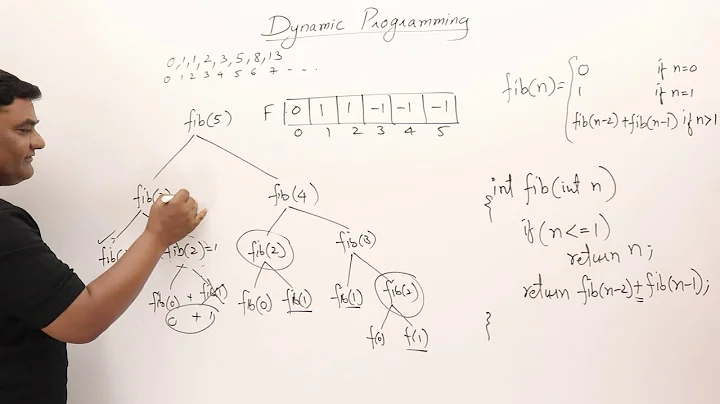 Dynamic Programming
0,1,1,2,3,5,8,13
0 1 2 3 4 5 6 7 - - -
fib(5)
F 0 1 1 -1 -1 -1
0 1 2 3 4 5
fib(n)= 0 if n=0
1 if n=1
fib(n-2)+fib(n-1) if n>1
fib(4)
fib(2)=1
fib(2)
fib(3)
fib(0) + fib(1)
0 + 1
fib(0)
fib(1)
fib(1)
fib(2)
f(0)
f(1)
int fib(int n)
{
if(n<=1)
return n;
return fib(n-2)+fib(n-1);
}